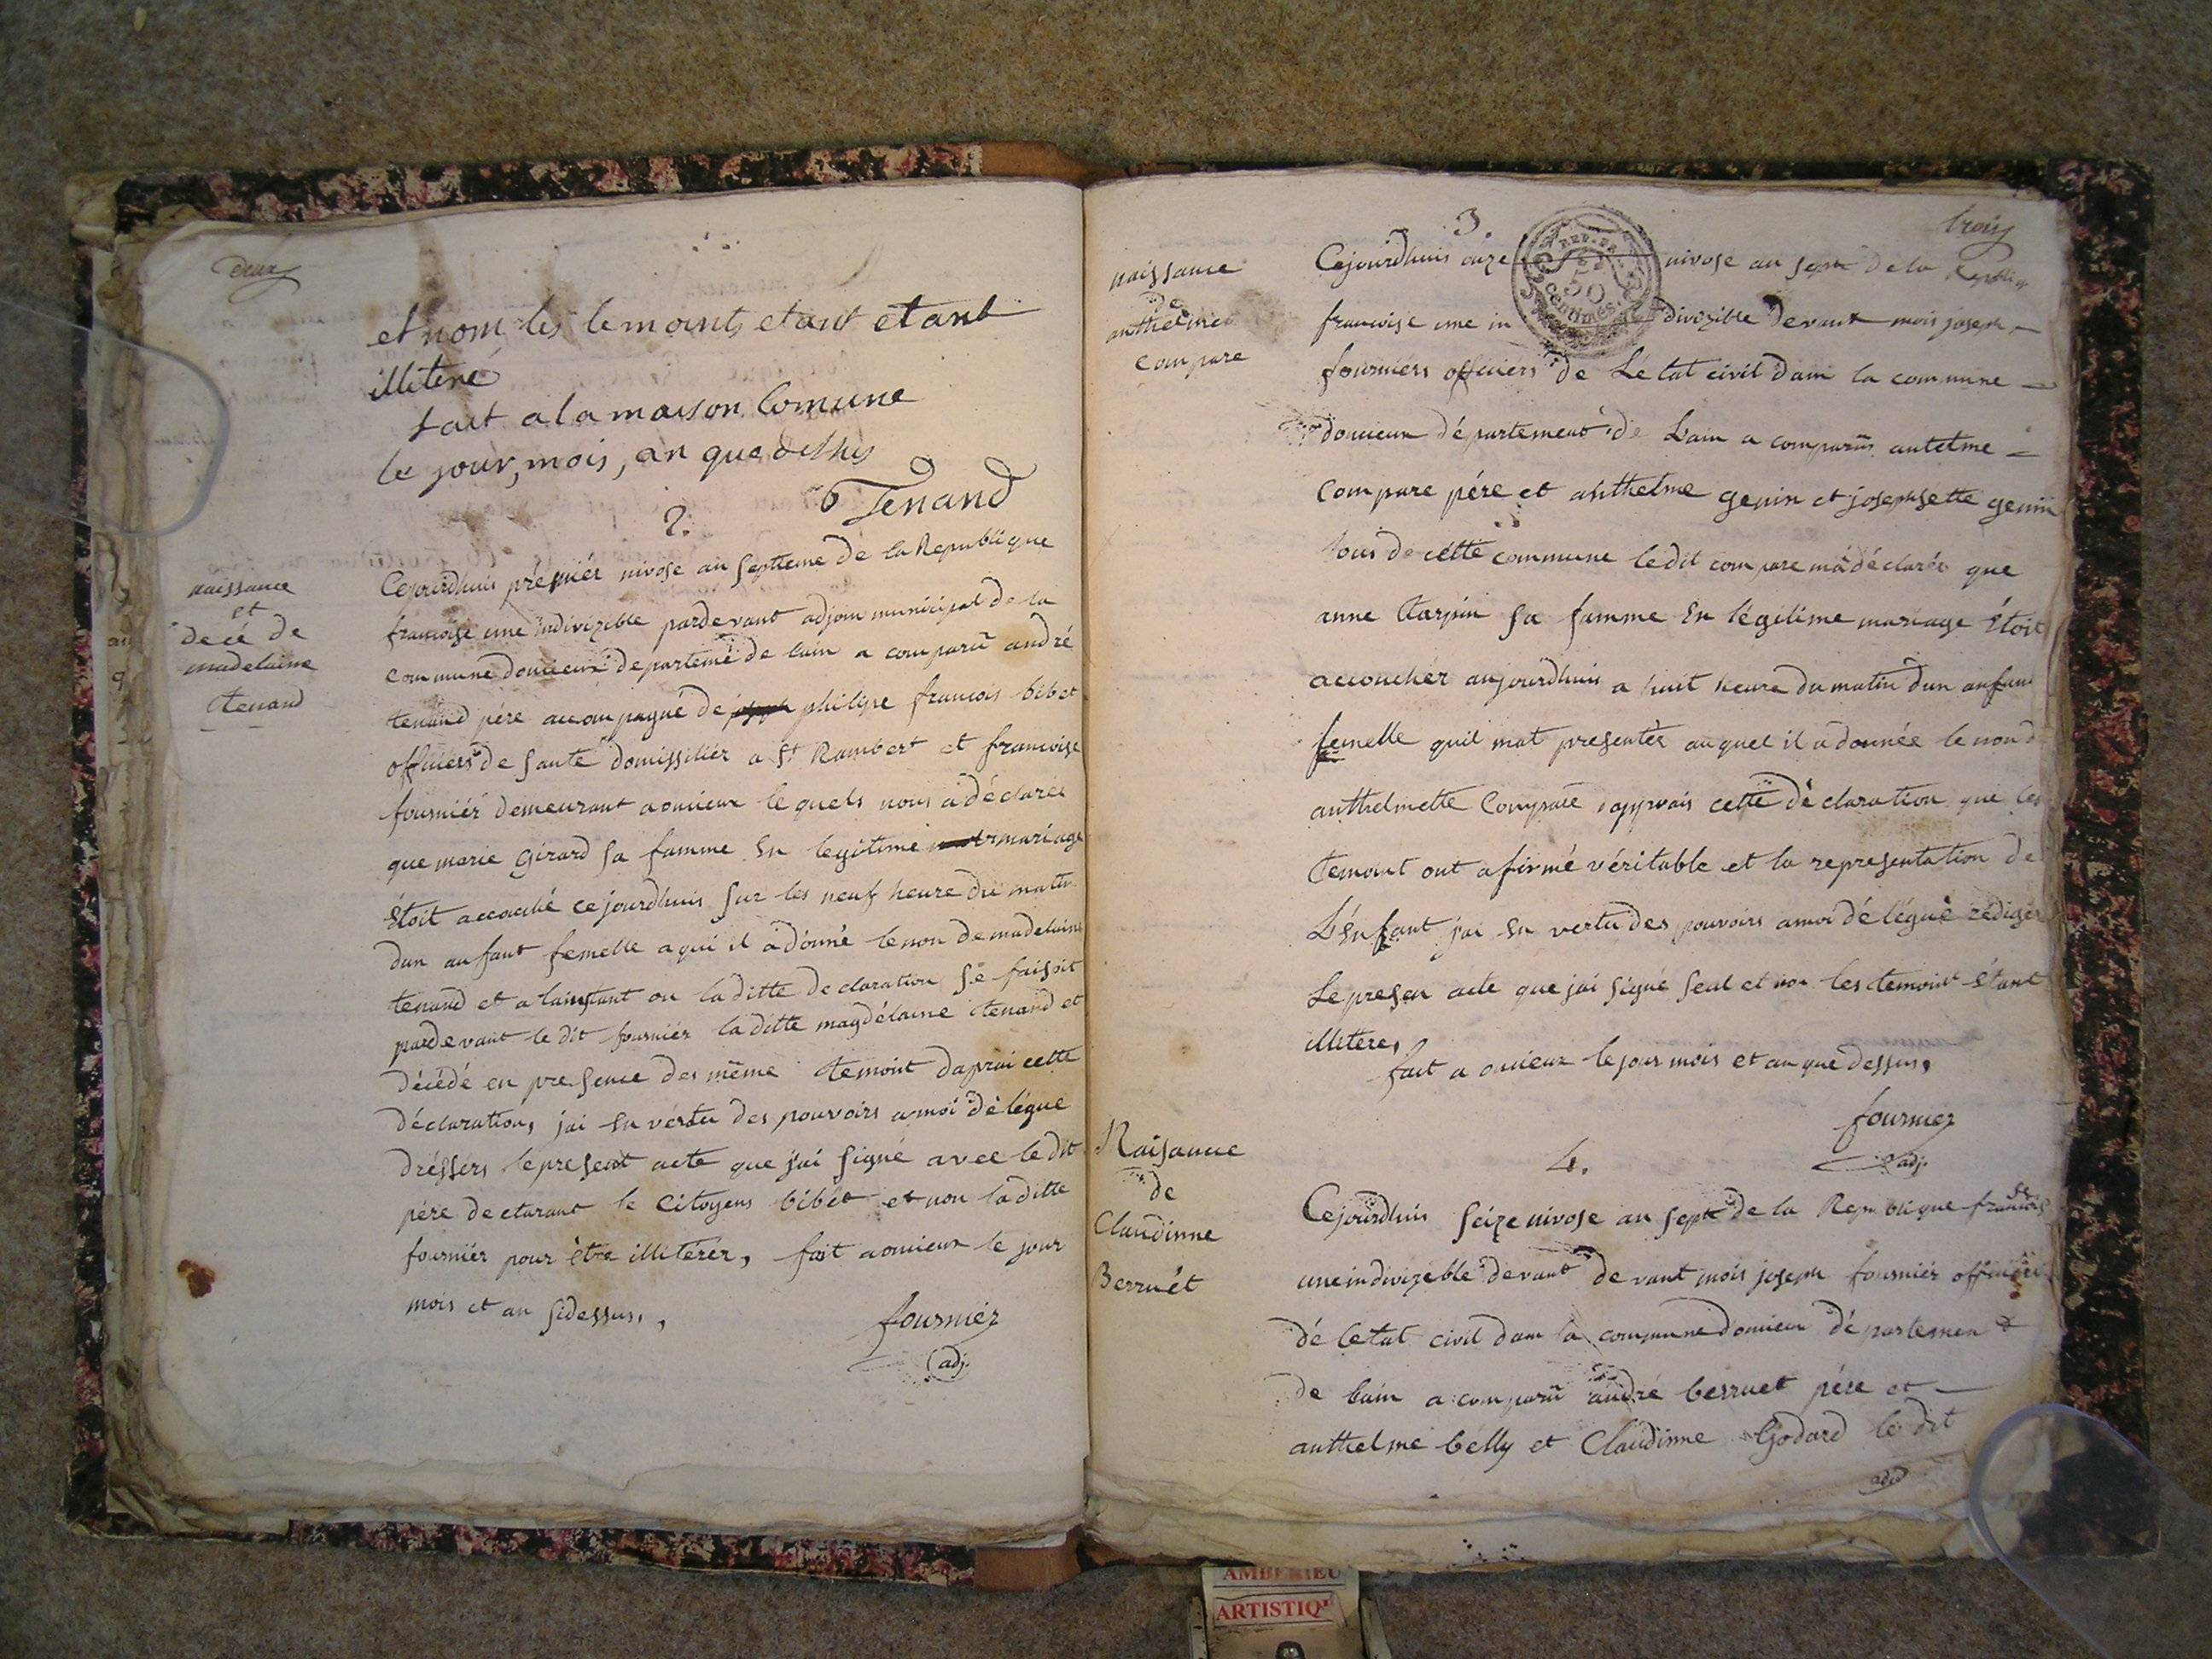 deux
et nom les temoints etant etant
illiteré
fait a la maison Comune
le jour, mois, an que dessus
Tenand
2.
naissance
et
decé de
madelaine
tenand
Cejourdhuis prémiér nivose an septieme de la Republique
francoise une indivizible pardevant adjoin municipal de la
commune donicieux departemé de lain a comparu andré
tenand pére accompagné de philipe francois bibet
officiers de santé domissiliér a St Rambert et francoise
fourniér demeurant a onicieux lequels nous a déclarée
que marie Girard sa famme En legitime mariage
Etoit accouché cejourdhuis sur les neuf heure du matin
dun anfant femelle a qui il a donné le non de madelaine
tenand et a lainstant ou laditte declaration se faisoit
pardevant le dit fourniér laditte magdélaine tenand et
décédé en presence des même temoint daprai cette
déclaration, jai En vertu des pouvoirs a moi délégué
dréssérs lepresent acte que jai signé avec le dit
pére declarant le Citoyens bibét et non laditte
fourniér pour être illitérér, fait a onicieux le jour
mois et an sidessus,
fourniér
adj.
trois
3.
naissance
de
anthelme
compare
Cejourdhuis onze nivose an sept de la Republiq
francoise une in divizible devant mois joseph
fourniérs officiérs de Létat civil dans la commune
donicieux département de Lain a comparus antelme
Compare pére et anthelme genin et josephsette genin
tous de cétte commune ledit compare ma déclarée que
anne Carpin sa famme En légitime mariage Etoit
accouchér aujourdhuis a huit heure du matin dun anfant
femelle quil mat presentér auquel il a donnée le non d
anthelmette Compare, apprais cette déclaration que les
temoint ont afirmé véritable et la representation de
L'Enfant jai En vertu des pouvoirs a moi délégué rédigér
Le presen acte que jai signé seul et non les temoint Etant
illitére,
fait a onicieux le jour mois et an que dessus,
fourniér
adj.
4.
Naisance
de
Claudinne
Berruét
Cejourdhuis seize nivose an sept de la Republique francoise
une indivizible devant devant mois joseph fourniér officiér
dé Letat civil dans la commune donicieux département
de lain a comparu andré berruet pére et
anthelme belly et Claudinne Godard le dit
AMBERIEU
ARTISTIQ